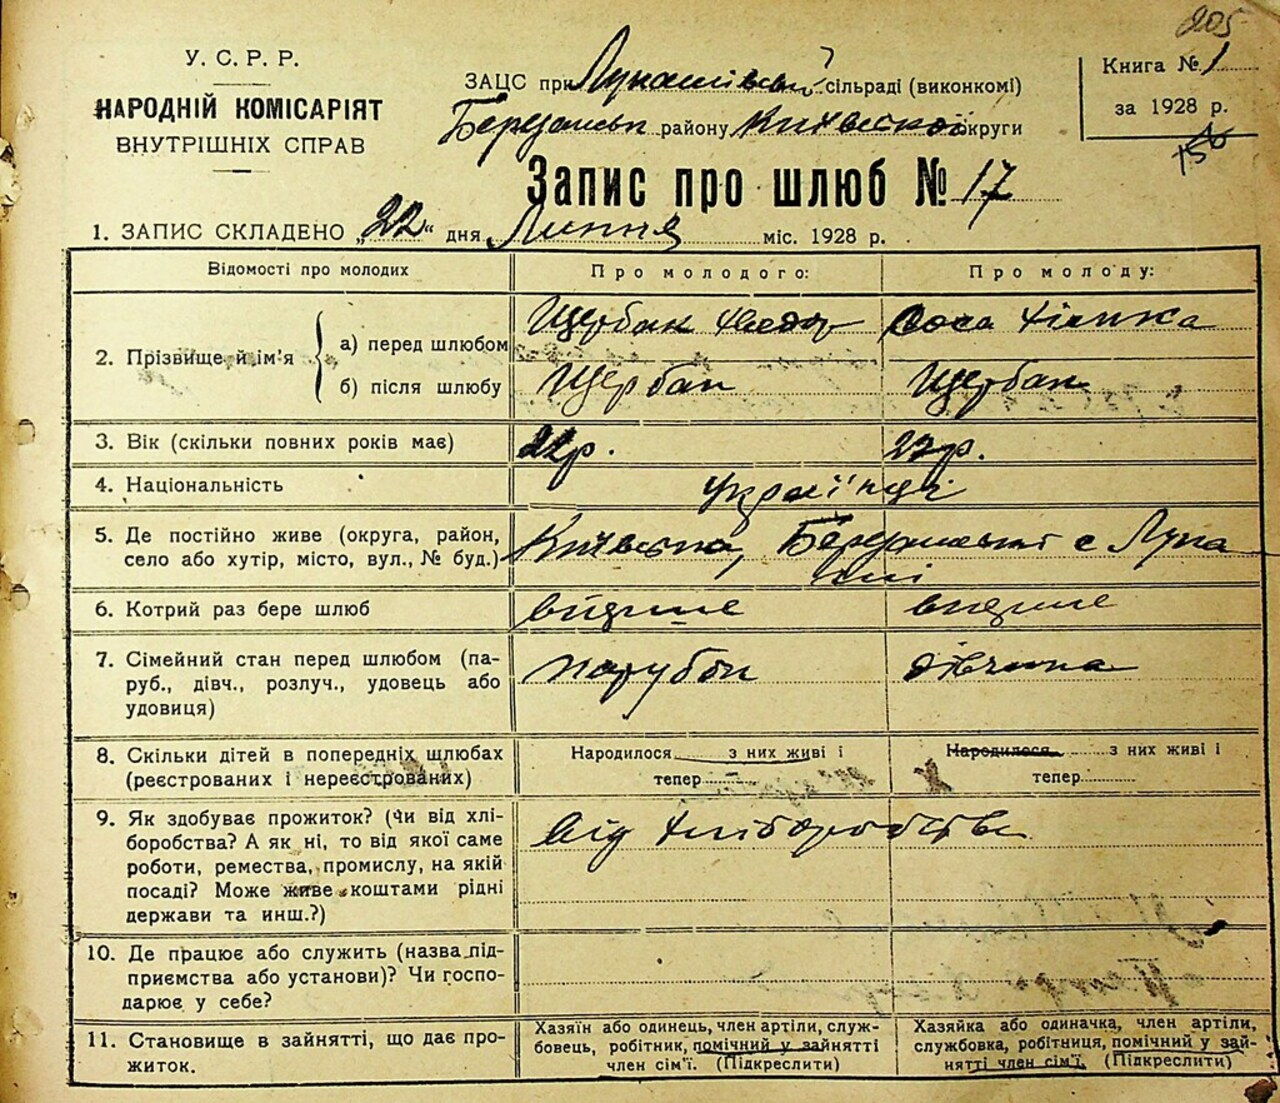 205
У. С. Р. Р.
НАРОДНІЙ КОМІСАРІЯТ
ВНУТРІШНІХ СПРАВ
ЗАЦС при Лукашівській сільраді (виконкомі)
Березанськ району Київської округи
Книга № 1
за 1928 р.
156
Запис про шлюб № 17
1. ЗАПИС СКЛАДЕНО „22“ дня Липня міс. 1928 р.
Відомості про молодих
Про молодого:
Про молоду:
2. Прізвище й ім'я
а) перед шлюбом
Щербак Федор
Соса
б) після шлюбу
Щербак
Щербак
3. Вік (скільки повних років має)
22р.
23р.
4. Національність
Українці
5. Де постійно живе (округа, район,
село або хутір, місто, вул., № буд.)
Київська, Березанський с Лука
ші
6. Котрий раз бере шлюб
вперше
вперше
7. Сімейний стан перед шлюбом (па-
руб., дівч., розлуч., удовець або
удовиця)
парубок
дівчина
8. Скільки дітей в попередніх шлюбах
(реєстрованих і нереєстрованих)
Народилося з них живі і
тепер
Народилося з них живі і
тепер
9. Як здобуває прожиток? (Чи від хлі-
боробства? А як ні, то від якої саме
роботи, ремества, промислу, на якій
посаді? Може живе коштами рідні
держави та инш.?)
від хліборобства
10. Де працює або служить (назва під-
приємства або установи)? Чи госпо-
дарює у себе?
11. Становище в зайнятті, що дає про-
житок.
Хазяїн або одинець, член артіли, служ-
бовець, робітник, помічний у зайнятті
член сім'ї. (Підкреслити)
Хазяйка або одиначка, член артіли,
службовка, робітниця, помічний у зай-
нятті член сім'ї. (Підкреслити)